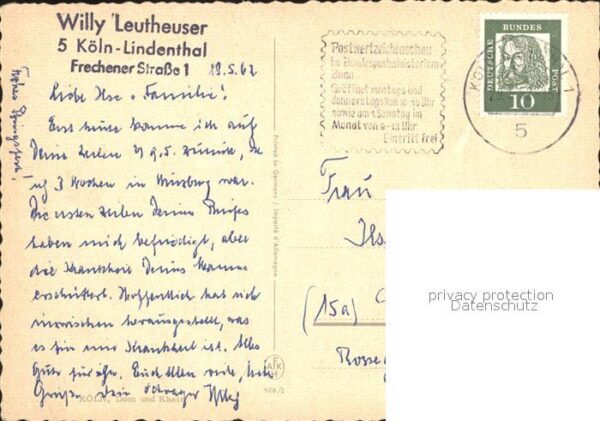 Willy Leutheuser
5 Köln-Lindenthal
Frechener Straße 1 19.5.62
Liebe Ilse u Familie!
Erst heute komme ich auf
Deine Zeilen v 9.5. zurück, da
ich 3 Wochen in Würzburg war.
Die ersten Zeilen Deines Briefes
haben mich befriedigt, aber
die Krankheit Deines Mannes
erschüttert. Hoffentlich hat sich
inzwischen herausgestellt, was
es für eine Krankheit ist. Alles
Gute für ihn. Euch allen viele, liebe
Grüße Dein Schwager Willy
Frohes Pfingstfest!
KÖLN, Dom und Rhein
Printed in Germany / Importé d'Allemagne
AIK
928/2
Postwertzeichenschau
im Bundespostministerium
Bonn
Geöffnet montags und
donnerstags von 10-13 Uhr
sowie am 1. Sonntag im
Monat von 9-13 Uhr
Eintritt frei
DEUTSCHE BUNDES POST
10
KÖLN 1
5
Frau
Ilse
(15a)
privacy protection
Datenschutz